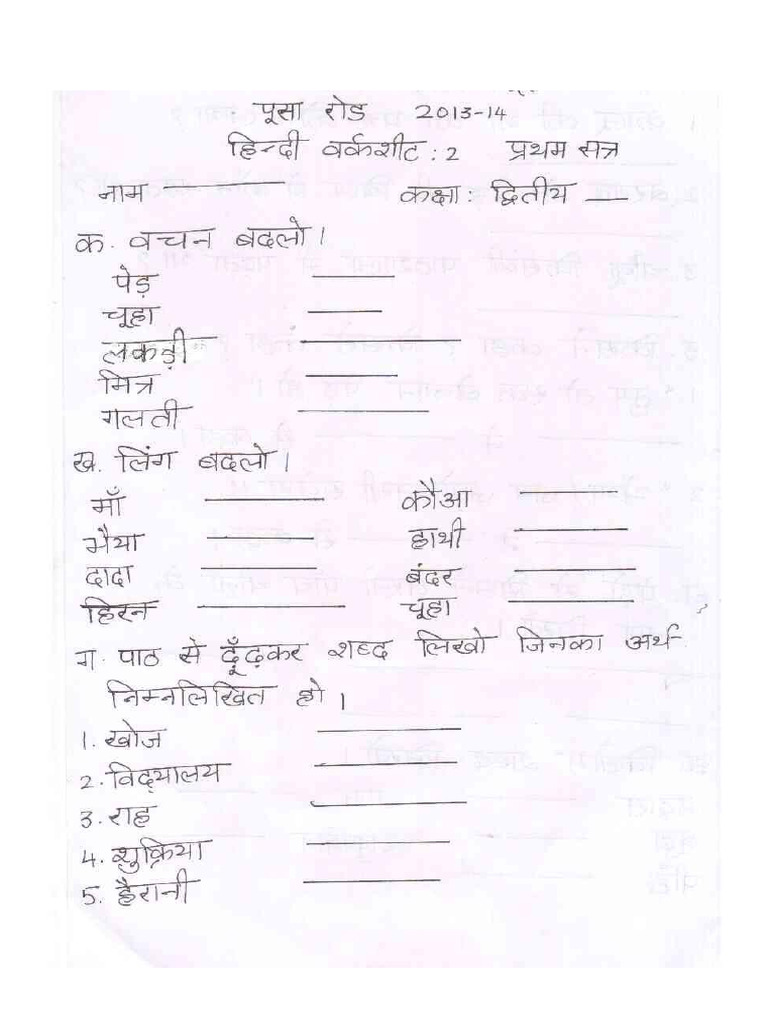 पूसा रोड 2013-14
हिन्दी वर्कशीट : 2 प्रथम सत्र
नाम कक्षा : द्वितीय
क. वचन बदलो।
पेड़
चूहा
लकड़ी
मित्र
गलती
ख. लिंग बदलो।
माँ कौआ
भैया हाथी
दादा बंदर
हिरन चूहा
ग. पाठ से ढूँढ़कर शब्द लिखो जिनका अर्थ
निम्नलिखित हो।
1. खोज
2. विद्यालय
3. राह
4. शुक्रिया
5. हैरानी